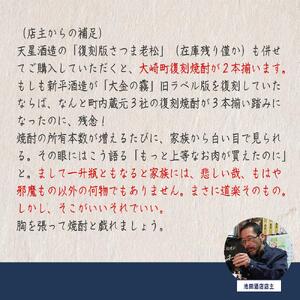 （店主からの補足）
天星酒造の「復刻版さつま老松」（在庫残り僅か）も併せ
てご購入していただくと、大崎町復刻焼酎が２本揃います。
もしも新平酒造が「大金の露」旧ラベル版を復刻していた
ならば、なんと町内蔵元３社の復刻焼酎が３本揃い踏みに
なったのに、残念！
焼酎の所有本数が増えるたびに、家族から白い目で見られ
る。その眼にはこう語る「もっと上等なお肉が買えたのに」
と。まして一升瓶ともなると家族には、悲しい哉、もはや
邪魔もの以外の何物でもありません。まさに道楽そのもの。
しかし、そこがいいそれでいい。
胸を張って焼酎と戯れましょう。
池田酒店店主